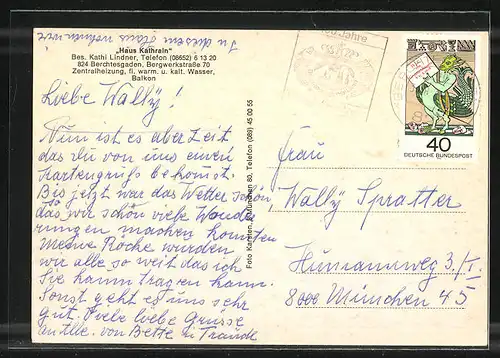 In diesem Haus wohnen wir
„Haus Kathrein"
Bes. Kathi Lindner, Telefon (08652) 6 13 20
824 Berchtesgaden, Bergwerkstraße 70
Zentralheizung, fl. warm. u. kalt. Wasser,
Balkon
Liebe Wally!
Nun ist es aber Zeit
das du von uns einen
Kartengruß bekomst.
Bis jetzt war das Wetter schön,
das wir schön viele Wande
rungen machen konnten
Meine Röcke wurden
wir alle so weit das ich
Sie kann tragen kann.
Sonst geht es uns sehr
gut. Viele liebe Grüsse
an alle. von Bette u. Traudl
Foto Karmen, München 80, Telefon (089) 45 00 55
Jahre
40
DEUTSCHE BUNDESPOST
Frau
Wally Spratter
3/I.
8000 München 45